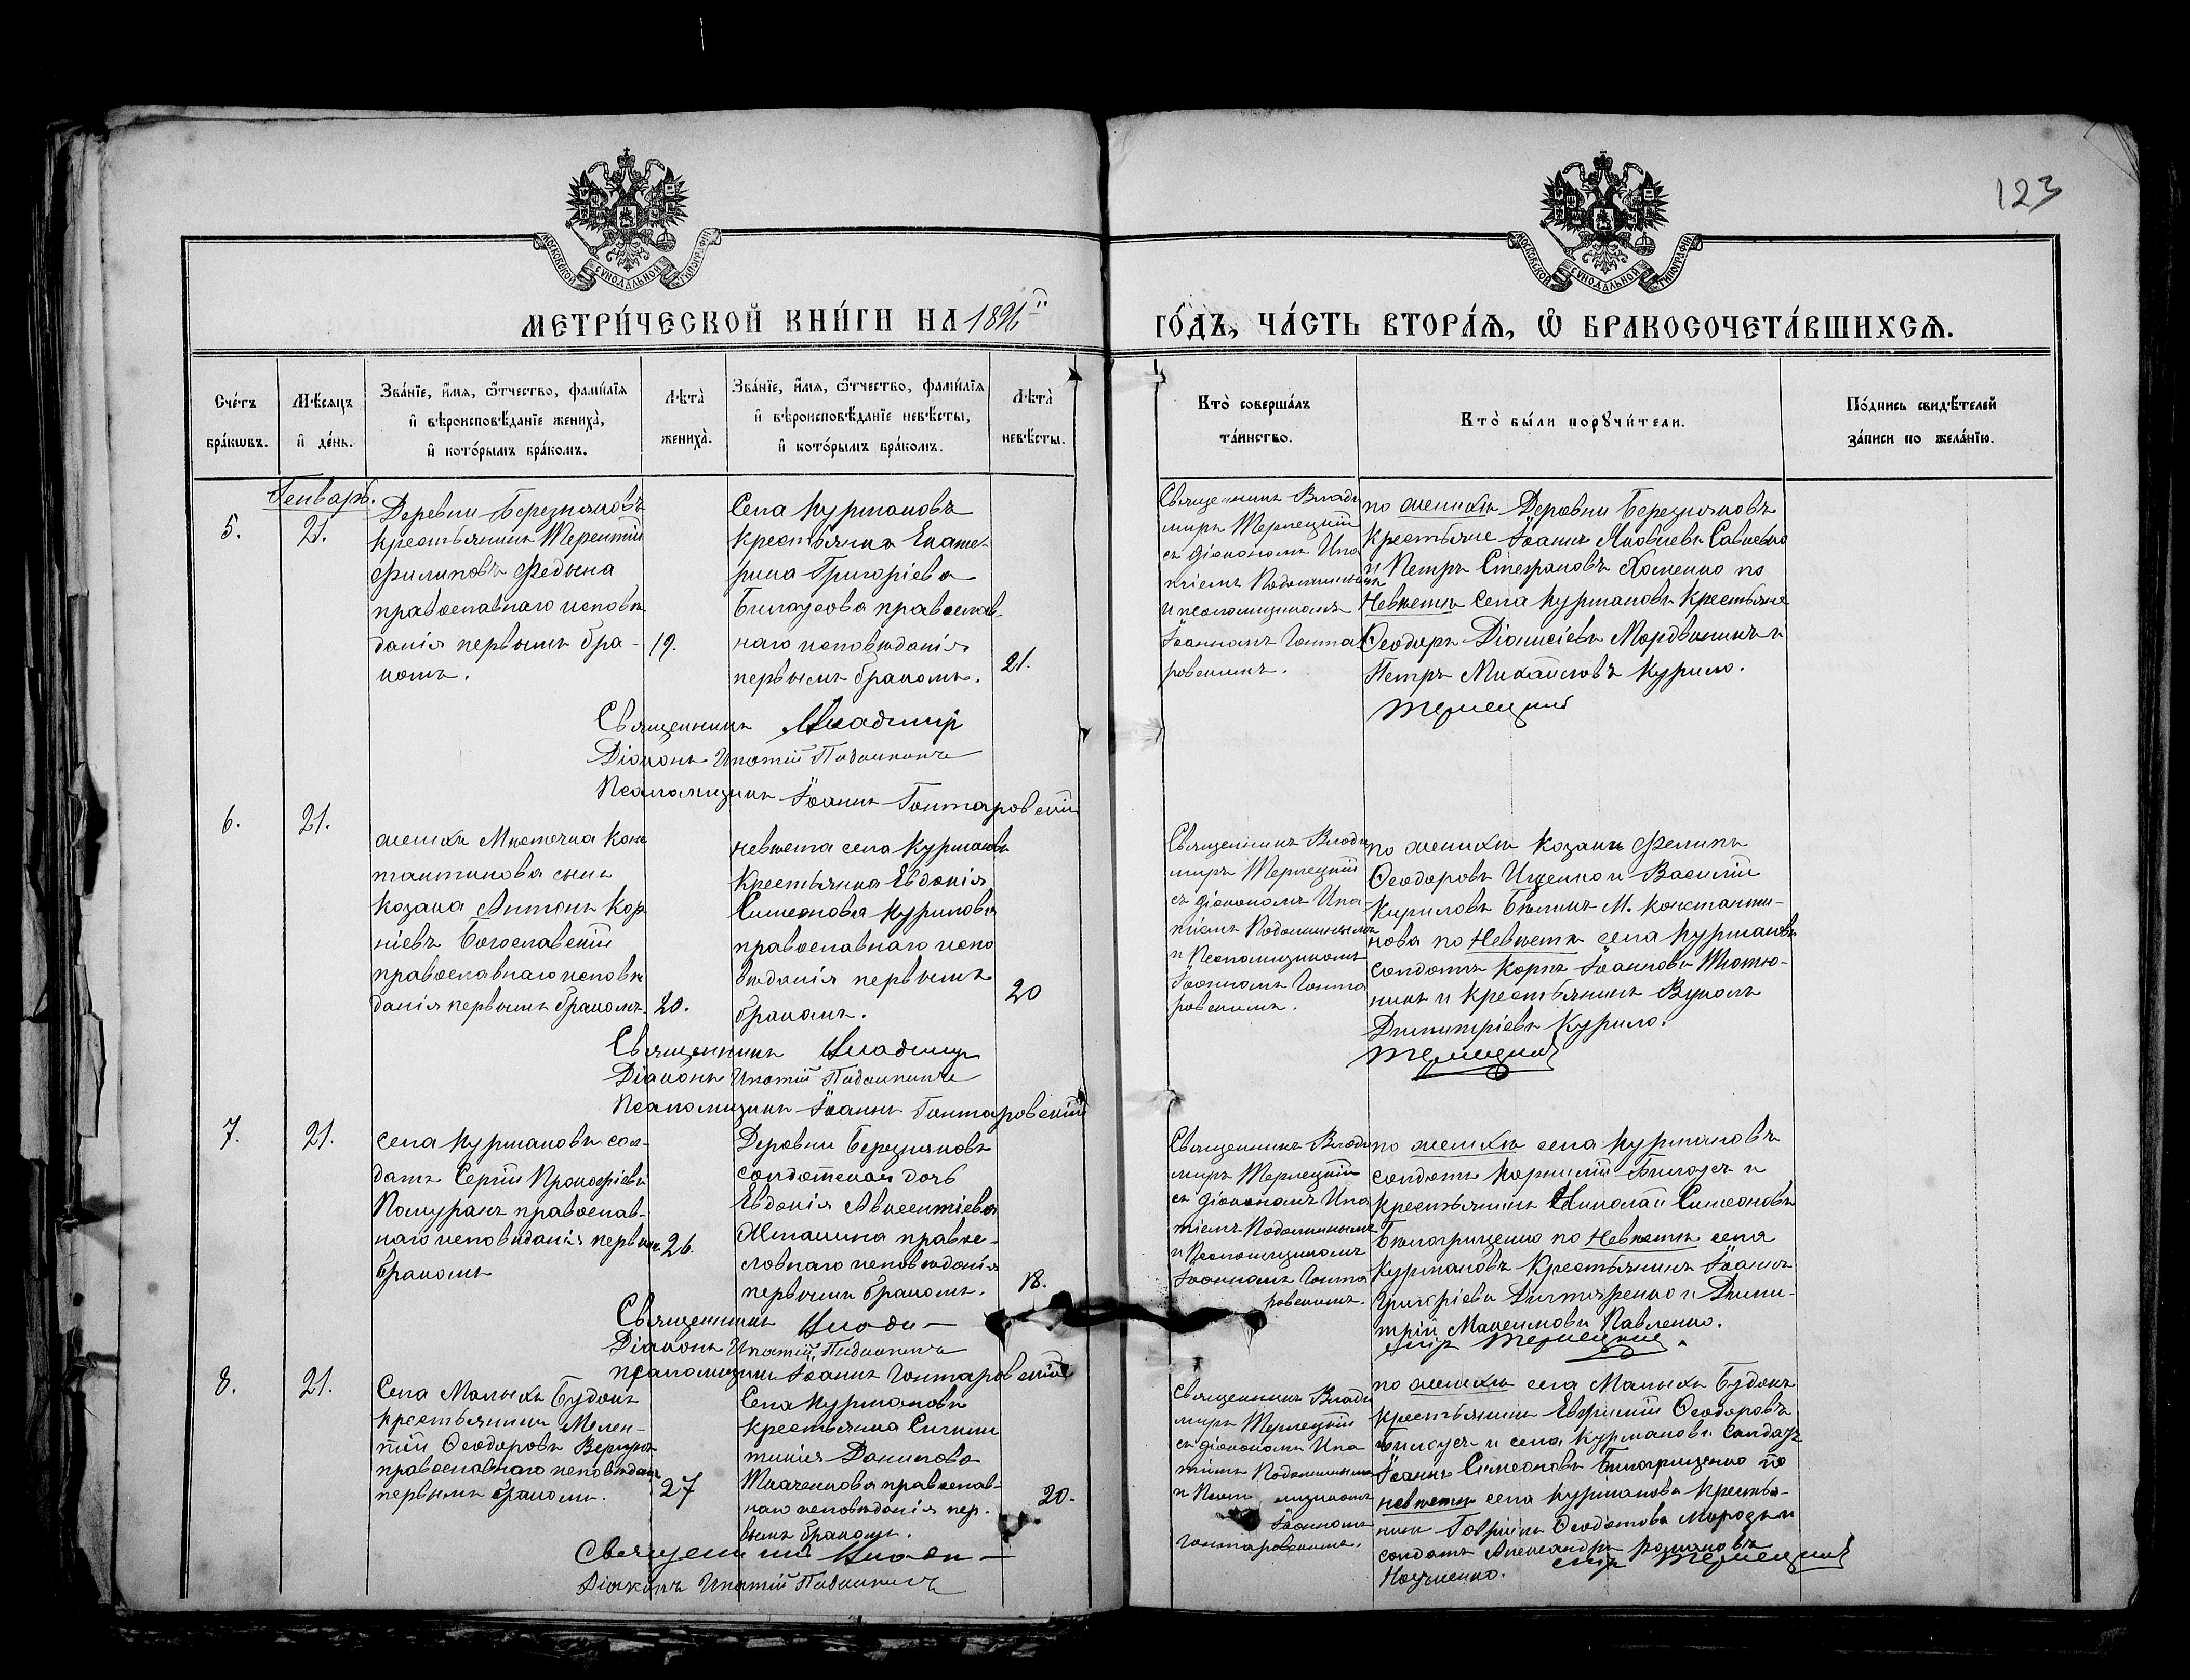 123
МОСКОВСКОЙ СУНОДАЛЬНОЙ ТИПОГРАФІИ
МОСКОВСКОЙ СУНОДАЛЬНОЙ ТИПОГРАФІИ
МЕТРИ́ЧЕСКОЙ КНИ́ГИ НА 1896й
ГО́ДЪ, ЧА́СТЬ ВТОРА́Ѧ, Ѽ БРАКОСОЧЕТА́ВШИХСѦ.
Сче́тъ
бра́кѡвъ.
Мѣ́сяцъ
и҆ де́нь.
Зва́нїе, и҆́мя, ѻ҆́тчество, фами́лїя
и҆ вѣроисповѣ́данїе жениха̀,
и҆ кото́рымъ бра́комъ.
Лѣ́та̀
жениха̀.
Зва́нїе, и҆́мя, ѻ҆́тчество, фами́лїя
и҆ вѣроисповѣ́данїе невѣ́сты,
и҆ кото́рымъ бра́комъ.
Лѣ́та̀
невѣ́сты.
Кто̀ соверша́лъ
та́инство.
Кто̀ бы́ли порꙋчи́тели.
По́дпись свидѣ́телей
за́писи по жела́нїю.
Генварь.
5.
21.
Деревни Березняковъ
крестьянинъ Терентій
Филиповъ Федына
православнаго исповѣ
данія первымъ бра-
комъ.
19.
Села Курмановъ
крестьянка Екате-
рина Григоріева
Билоусова православ-
наго исповѣданія
первымъ бракомъ.
21.
Священникъ Влади
миръ Терлецкій
съ діакономъ Ипа
тіемъ
и псаломщикомъ
Іоанномъ Гонта
ровскимъ.
по женихѣ Деревни Березняковъ
крестьяне Іоаннъ Яковлевъ
и Петръ Стефановъ Хоменко по
Невѣстѣ села Курмановъ крестьяне
Ѳеодоръ Діонисіевъ Мордвиникъ и
Петръ Михайловъ Курило.
Священникъ Владимір
Терлецкій
Діаконъ Ипатій
Псаломщикъ Іоаннъ Гонтаровскій
6.
21.
женихъ Мѣстечка Конс
тантинова сынъ
козака Антонъ Кор
ніевъ Богославскій
православнаго исповѣ
данія первымъ бракомъ.
20.
невѣста села Курмановъ
крестьянка Евдокія
Симеонова Курилова
православнаго испо
вѣданія первымъ
бракомъ.
20
Священникъ Влади
миръ Терлецкій
съ діакономъ Ипа-
тіемъ
и Псаломщикомъ
Іоанномъ Гонта
ровскимъ.
по женихѣ козаки Филипъ
Ѳеодоровъ Ищенко и Василій
Кириловъ М. Константи-
нова по Невѣстѣ села Курмановъ
солдатъ Корнъ Іоанновъ Тютю-
никъ и крестьянинъ Вуколъ
Димитріевъ Курило.
Священникъ Владимір
Терлецкій
Діаконъ Ипатій
Псаломщикъ Іоаннъ Гонтаровскій
7.
21.
Села Курмановъ сол-
датъ Сергій Прокофіевъ
православ-
наго исповѣданія первым
бракомъ
26.
Деревни Березняковъ
солдатская дочь
Евдокія Авксентіева
правос-
лавнаго исповѣданія
первымъ бракомъ.
18.
Священникъ Влади
миръ Терлецкій
съ діакономъ Ипа
тіемъ
и Псаломщикомъ
Іоанномъ Гонта
ровскимъ.
по женихѣ села Курмановъ
солдатъ Корнилій Билоусъ и
крестьянинъ Николай Симеоновъ
Билогрищенко по Невѣстѣ села
Курмановъ крестьянинъ Іоаннъ
Григоріевъ и Дими-
трій Максимовъ Павленко.
Священникъ Влади-
мір Терлецкій.
Діаконъ Ипатій
Псаломщикъ Іоаннъ Гонтаровскій
8.
21.
Села Малыхъ Будокъ
крестьянинъ Мелен-
тій Ѳеодоровъ
православнаго исповѣдан
первымъ бракомъ.
27
Села Курмановъ
крестьянка Синкли
тикія Данилова
Ткаченкова православ-
наго исповѣданія пер-
вымъ бракомъ.
20.
Священникъ Влади
миръ Терлецкій
съ діакономъ Ипа
тіемъ
и Псаломщикомъ
Іоанномъ
Гонтаровскимъ.
по женихѣ села Малыхъ Будокъ
крестьянинъ Ѳеодоровъ
Билоусъ и села Курмановъ солдатъ
Іоаннъ Симеоновъ Билогрищенко по
невѣстѣ села Курмановъ крестья-
нинъ Гавріилъ Ѳеодотовъ и
солдатъ Александръ Романовъ
Науменко.
Священникъ Влади-
мір Терлецкій
Діаконъ Ипатій